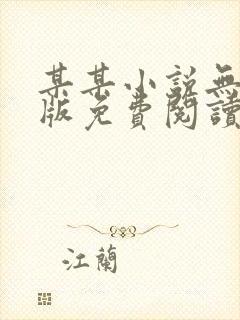 某某小説無
版免費閱讀
江蘭